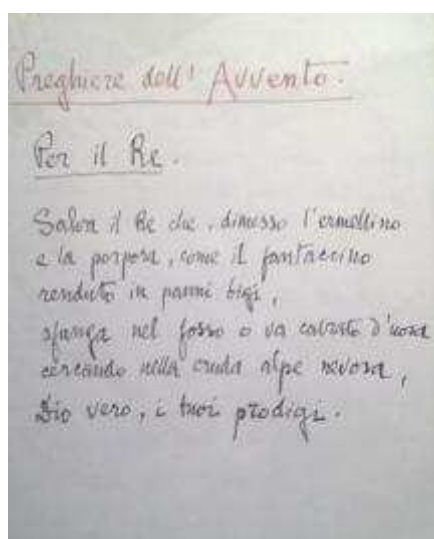 Preghiere dell' Avvento.
Per il Re.
Salva il Re che, dimesso l'ermellino
e la porpora, come il fantaccino
renduto in panni bigi,
sfanga nel fosso o va calzato d'uosa
cercando nella cruda alpe nevosa,
Dio vero, i tuoi prodigi.